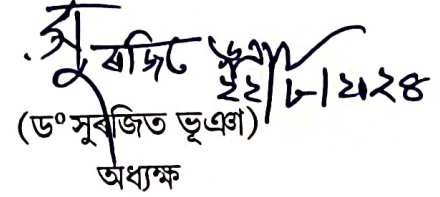 সুৰজিত ভূঞা
২২/৮/২০২৪
(ড° সুৰজিত ভূঞা)
অধ্যক্ষ